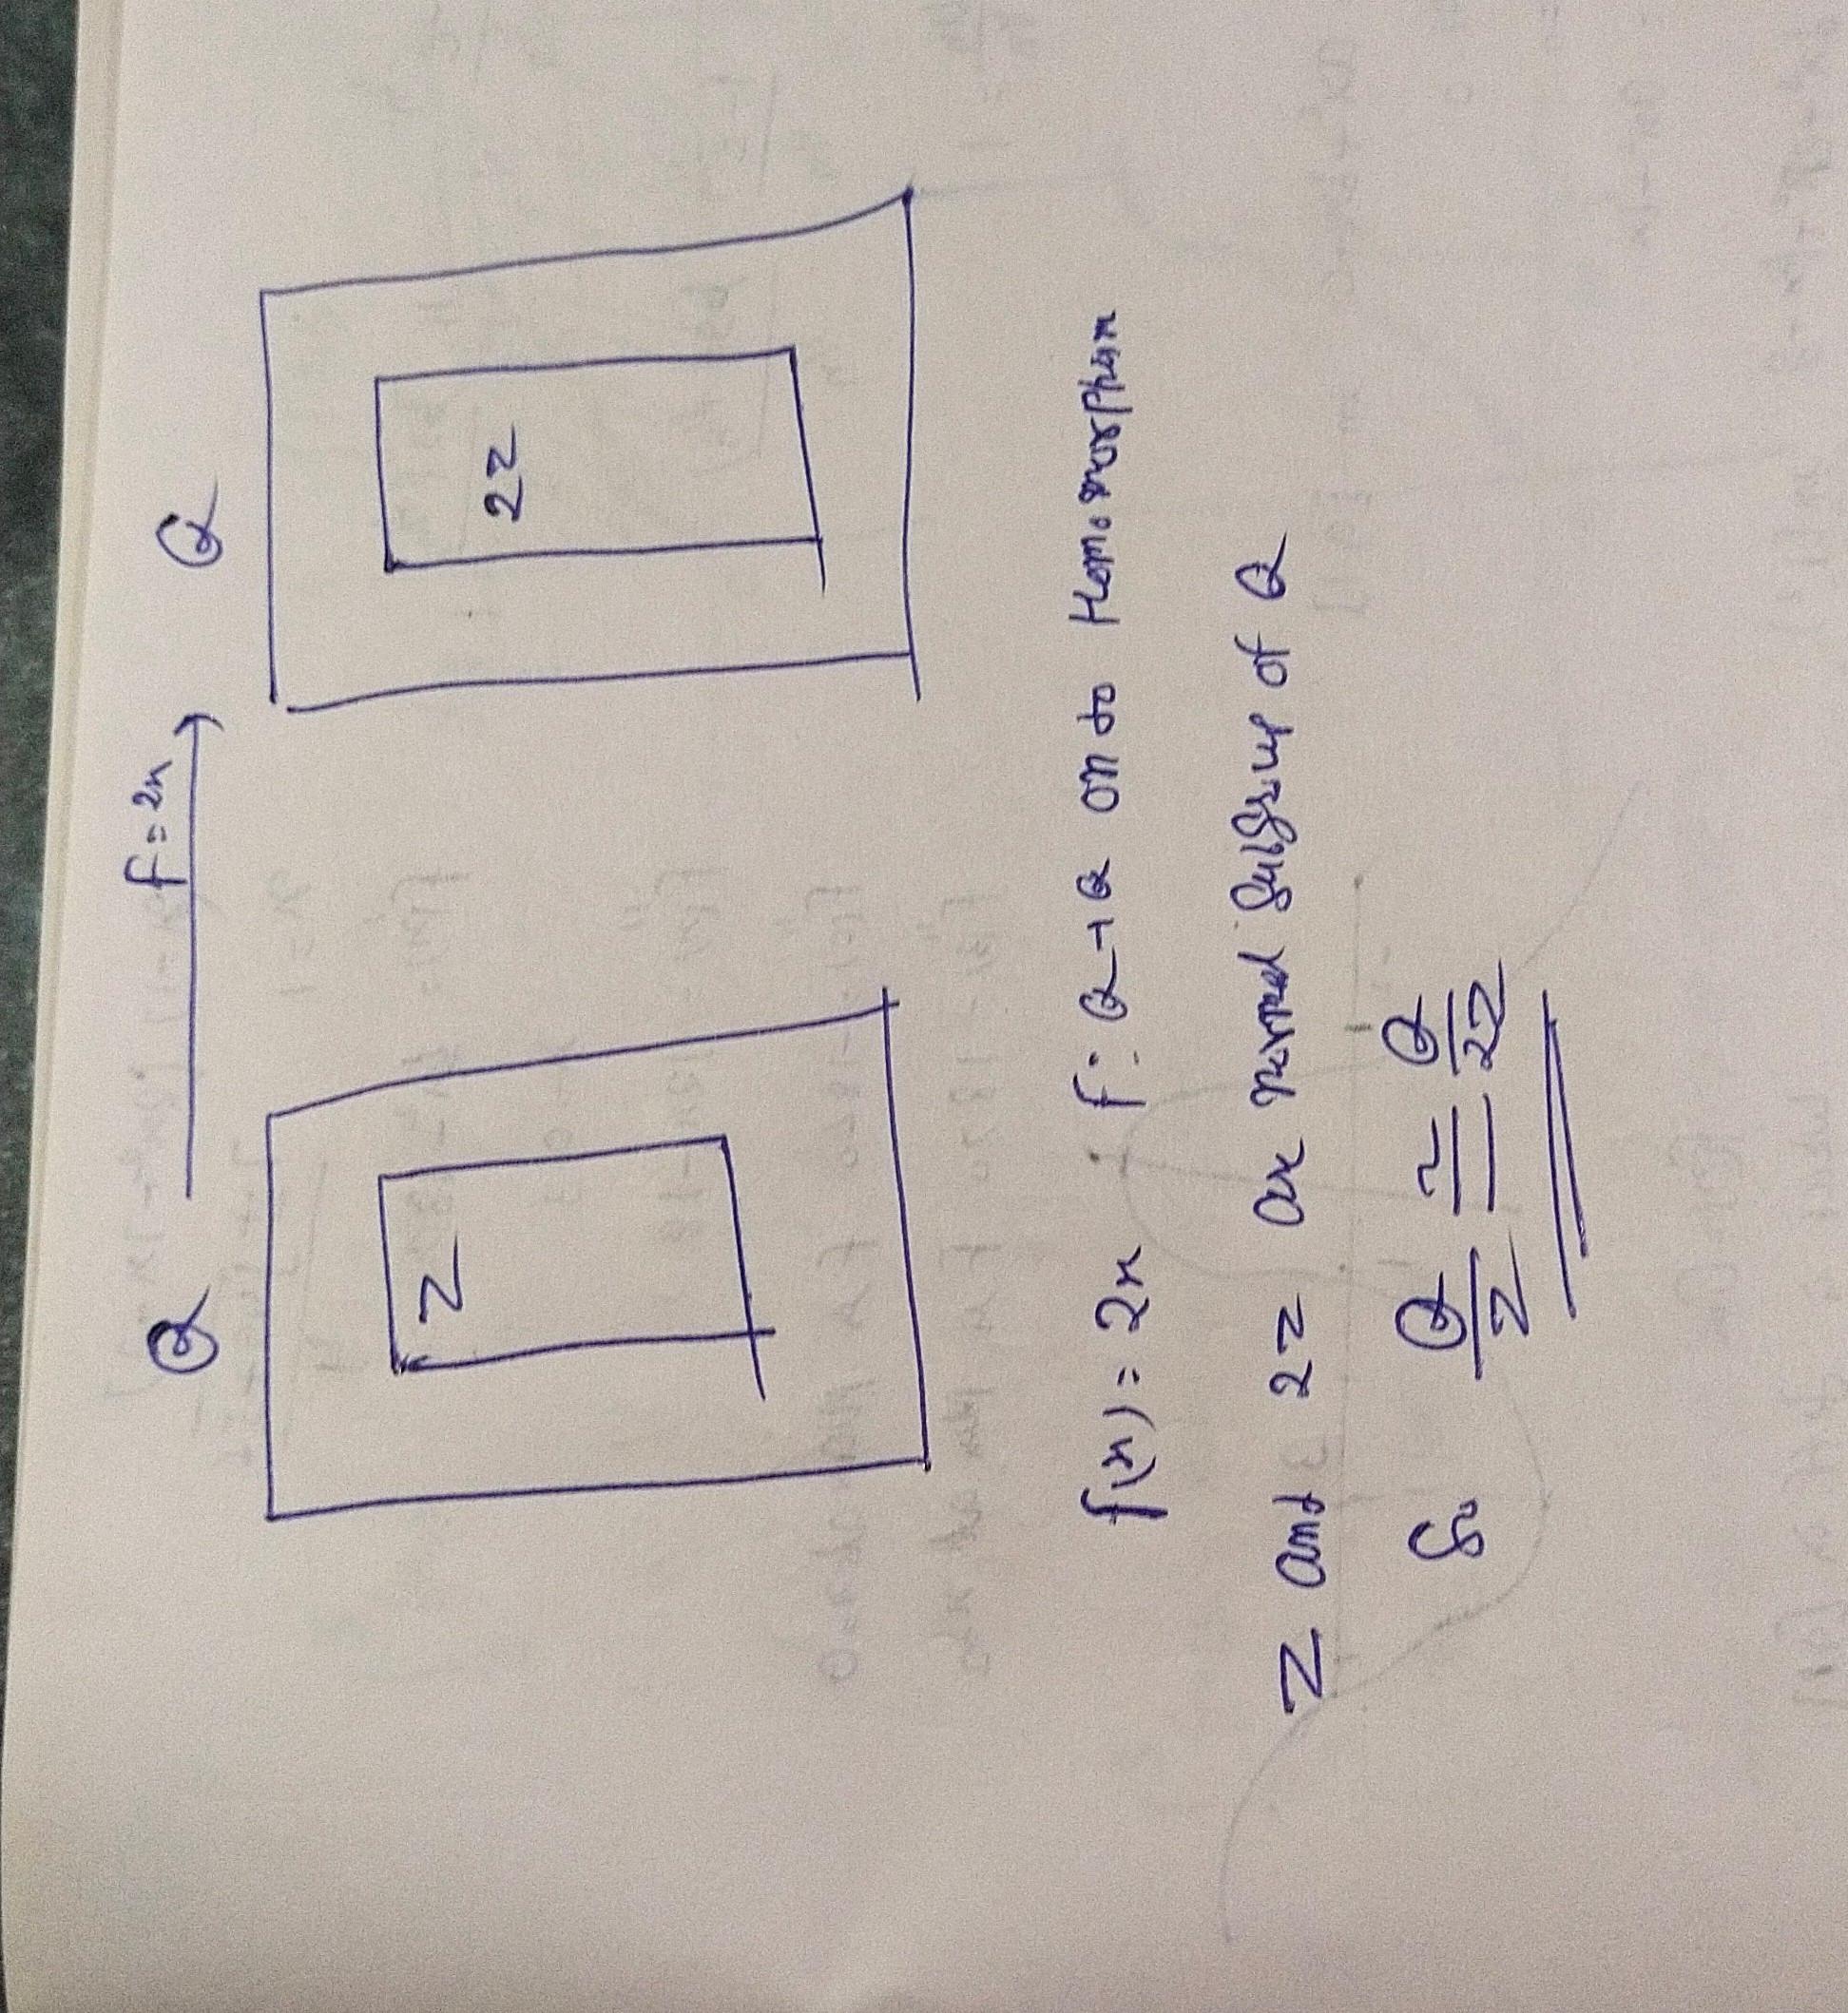 Q f = 2x Q
Z 2Z
f(x) = 2x f: Q → Q on to Homomorphism
Z and 2Z are normal subgroup of Q
So Q/Z ≅ Q/2Z